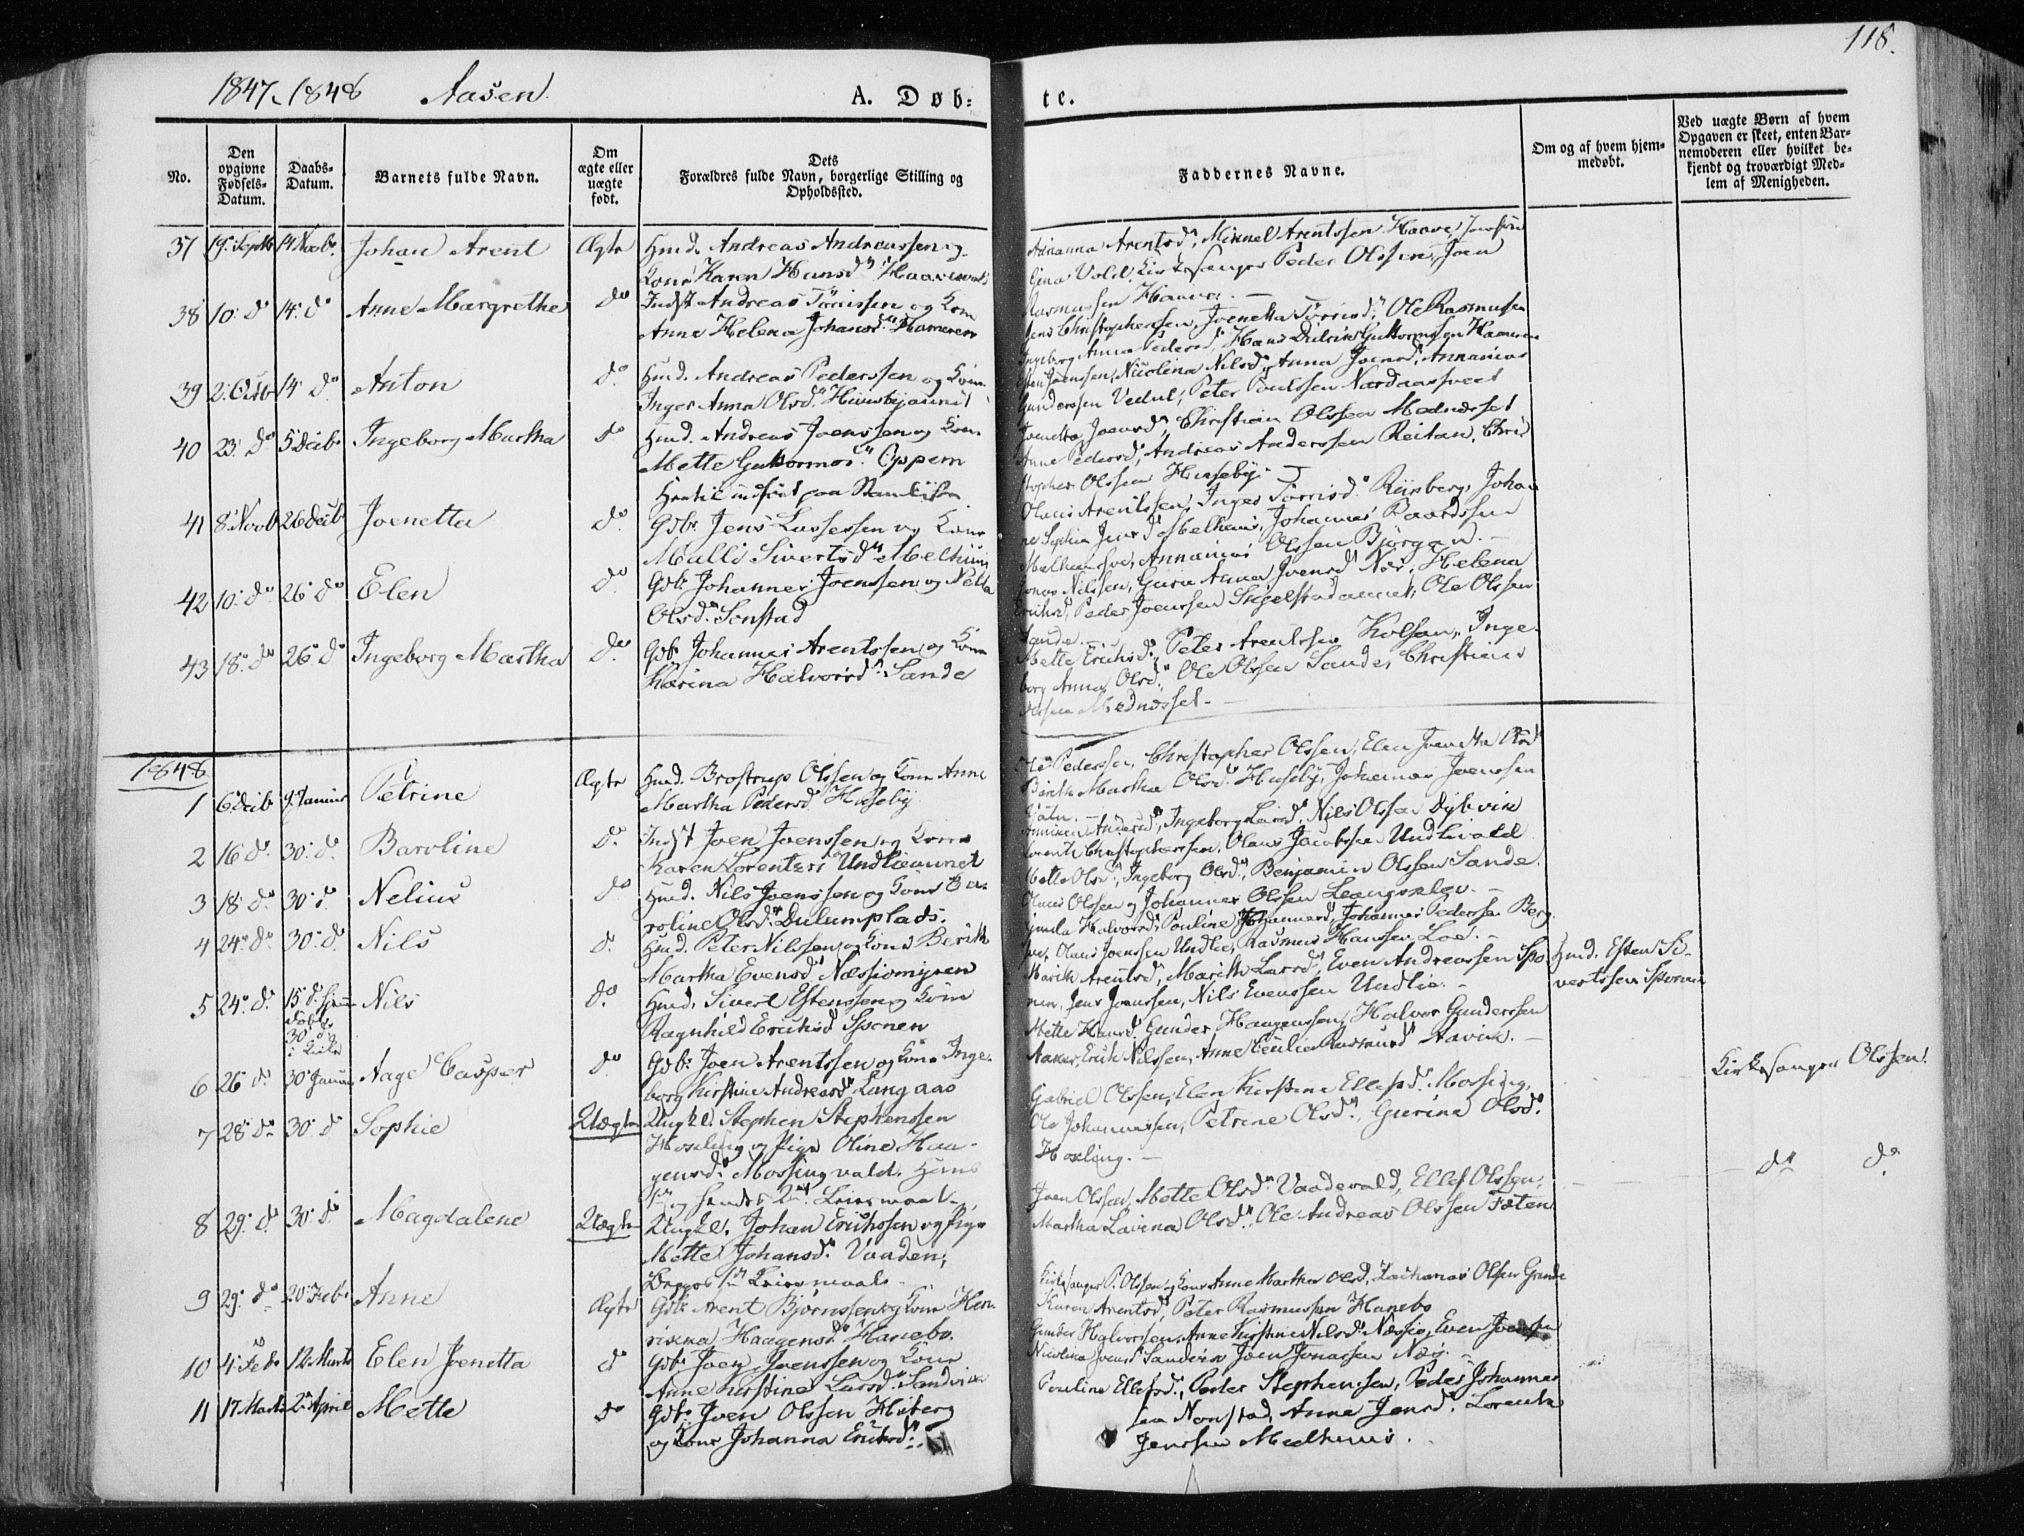 118.
1847-1848 Aasen
A. Døb-te.
No.
Den opgivne Fødsels-Datum.
Daabs-Datum.
Barnets fulde Navn.
Om ægte eller uægte født.
Dets Forældres fulde Navn, borgerlige Stilling og Opholdssted.
Faddernes Navne.
Om og af hvem hjem-medøbt.
Ved uægte Børn af hvem Opgaven er skeet, enten Bar-nemoderen eller hvilket be-kjendt og troværdigt Med-lem af Menigheden.
37 19. Septb 14 Novbr. Johan Arent Ægte Husmd. Andreas Andreassen og
Kone Karen Hansd.
Arentsd., Mikkel Arentssen Haave,
Vold, Kirkesanger Peder Olssen, Joen
Rasmussen Haave. —
38 10. do 14. do Anne Margrethe do Indst Andreas Tørrissen og Kone
Anne Helena Johansd. Hammeren
Jens Christophersen, Joenetta Tørrisd., Ole Rasmussen
Ingeborg Anna Pedersd., Hans Didrik Guttormssen
39 2. Octb 14 do Anton do Husmd. Andreas Pederssen og Kone
Inger Anna Olsd.
Esten Joenssen, Nicolena Nilsd., Anna Joensd., Annanias
Gunderssen Vedul, Peter Poulssen
40 23. do 5 Decbr Ingeborg Martha do Husmd. Andreas Joenssen og Kone
Mette Guttormsd. Oppem
Joensd., Christian Olssen Mednesset
Anne Pedersd., Andreas Anderssen Reitan, Chri
stopher Olssen Huseby. —
41 8. Novb 26 Decbr Joenetta do Gdbr Jens Lassessen og Kone
Malli Sivertsd. Melhuus
Olaus Arentssen, Inger Tørrisd. Rinberg, Johan
ne Sophia Jensd. Melhuus, Johannes Baardssen
Annanias Olssen Bjørgan. —
42 10. do 26 do Elen do Gdbr Johannes Joenssen og Netta
Olsd. Sonstad
Jonas Nilssen, Guru Anna Joensd. Næs, Helena
Eriksd., Peder Joenssen, Ole Olssen
Sande. —
43 18. do 26 do Ingeborg Martha do Gdbr Johannes Arentssen og Kone
Karina Halvorsd. Sande
Mette Eriksd., Peter Arentssen Kolsan, Inge
borg Anna Olsd., Ole Olssen Sande, Christian
Olssen Mednesset. —
1848.
1 6 Decb 9. Januar Petrine Ægte Husmd. Brostrup Olssen og Kone Anne
Martha Pedersd. Huseby
Ole Pederssen, Christopher Olssen, Elen Joenetta Olsd.
Berith Martha Olsd. Huseby, Johannes Joenssen
2 16 do 30 do Baroline do Indst Joen Joenssen og Kone
Karen Lorentzen Undlieaunet
Andersd., Ingeborg Larsd., Nils Olssen Dybvik
Lorents Christopherssen, Olaus Jacobssen Undlivald
3 18 do 30 do Nelius do Husmd. Nils Joenssen og Kone Ba-
roline Olsd. Dulumplads.
Mette Olsd., Ingeborg Olsd., Benjamin Olssen Sande.
Olaus Olssen og Johannes Olssen. —
4 24 do 30 do Nils do Husmd. Peter Nilssen og Kone Berith
Martha Evensd. Næssiomyren
Halvorsd., Pauline Johannesd., Johannes Pederssen Berg
Olaus Joenssen Undlie, Rasmus Hanssen Loe. —
5 24 do 15 do hjem
døbt
30 do
i Kirke Nils do Husmd. Sivert Estenssen og Kone
Ragnhild Eriksd. Sponen
Marith Arentsd., Marith Larsd., Even Andreassen Spo
nen, Jens Joenssen, Nils Evenssen Undlie. —
Husmd. Esten Si-
vertssen Sponen
6 26 do 30 Januar Aage Casper do Gdbr Joen Arentssen og Kone Inge-
borg Kirstine Andreasd. Langaas
Mette Hansd., Gunder Haagenssen, Halvor Gunderssen
Aaker, Erik Nilssen, Anne Cecilia Rasmusd. Aavik. —
7 28 do 30 do Sophie Uægte Ungkl. Stephen Stephenssen
Hoxling og Pige Oline Haa-
gensd. Mossingvald. Hans
1ste og hendes 2det Leiermaal
Gabriel Olssen, Elen Kirstine Ellefsd. Mossing,
Ole Johannessen, Petrine Olsd., Gurina Olsd.
Hoxling. —
Kirkesanger Olssen.
8 29. do 30 do Magdalene Uægte Ungkl. Johan Erikssen og Pige
Mette Johansd. Vaaden,
Begges 1ste Leiermaal.
Joen Olssen, Mette Olsd. Vaadevald, Ellef Olssen,
Martha Lavina Olsd., Ole Andreas Olssen Fæten
do do
9 29. do 20 Feb. Anne Ægte Gdbr Arent Bjørnssen og Kone Hen
rikna Haagensd. Hanebo.
Kirkesanger P. Olssen og Kone Anne Martha Olsd., Zacharias Olssen Grande
Karen Arentsd., Peter Rasmussen Hanebo
10 4 Feb. 12 Marts Elen Joenetta do Gdbr Joen Joenssen og Kone
Anne Kirstine Larsd. Sandvik
Gunder Halvorssen, Anne Kirstine Nilsd. Næssio, Even Joenssen
Nicolina Joensd. Sandvik, Joen Jonassen Næs. —
11 17 Marts 2 April Mette do Gdbr Joen Olssen Hoberg
og Kone Johanna Eriksd.
Pouline Ellefsd., Peder Stephenssen, Peder Johannes
sen Nonstad, Anne Jensd., Lorents
Jenssen Melhuus.